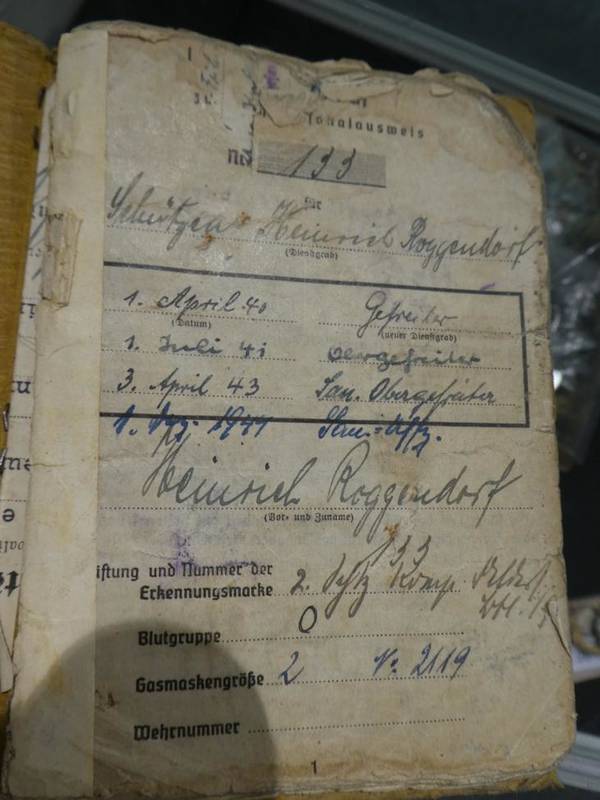 Nr. 133
für
Schützen Heinrich Roggendorf
(Dienstgrad)
1. April 40 Gefreiter
(Datum) (neuer Dienstgrad)
1. Juli 41 Obergefreiter
3. April 43 San. Obergefreiter
1. 1944
Heinrich Roggendorf
(Vor- und Zuname)
133
iftung und Nummer der
Erkennungsmarke 2. Komp.
Blutgruppe O
Gasmaskengröße 2 2119
Wehrnummer
1